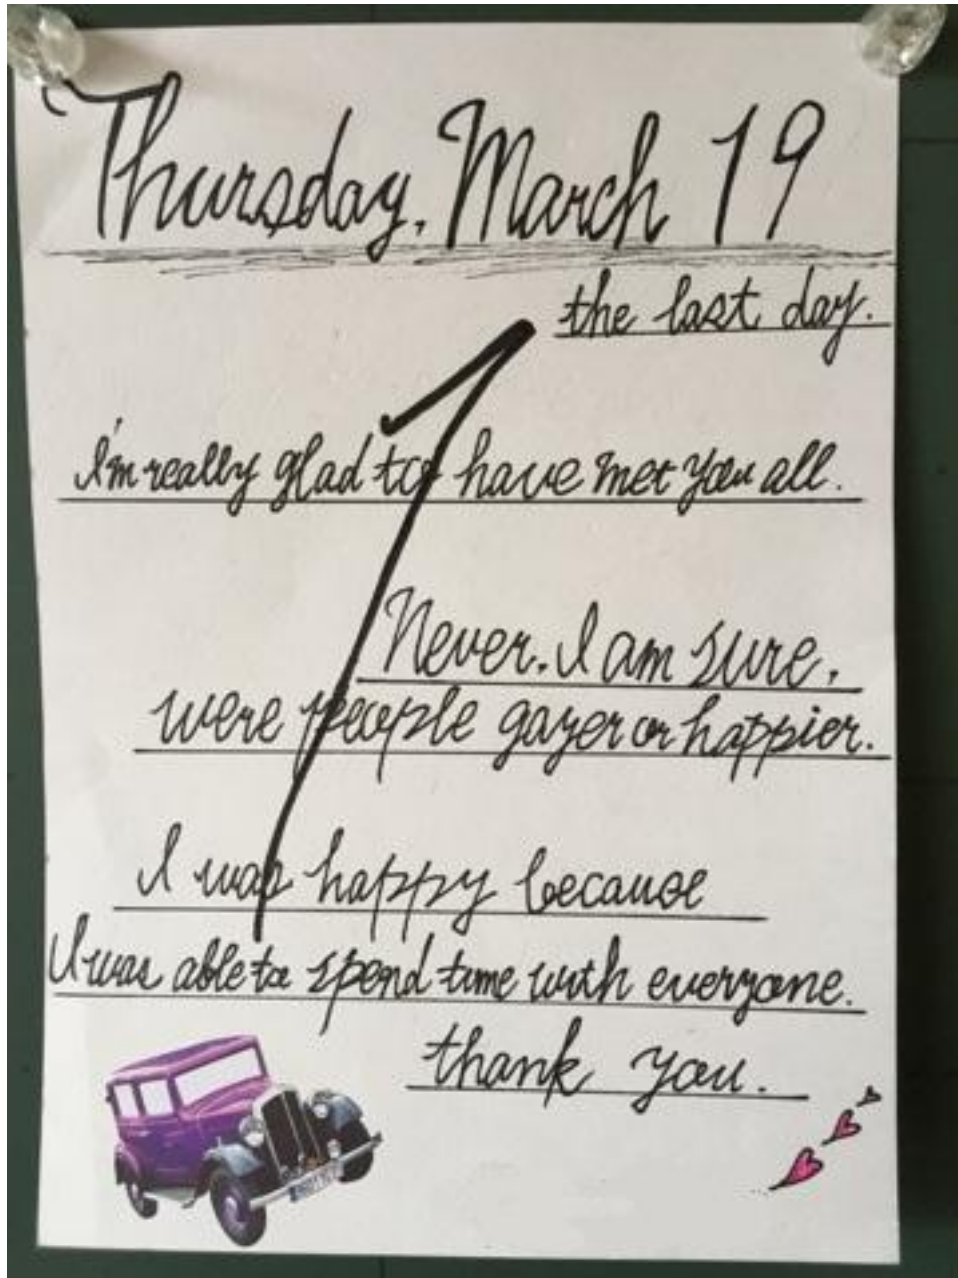 Thursday, March 19
the last day.
1
I'm really glad to have met you all.
Never. I am sure.
were people gayer or happier.
I was happy because
I was able to spend time with everyone.
thank you.